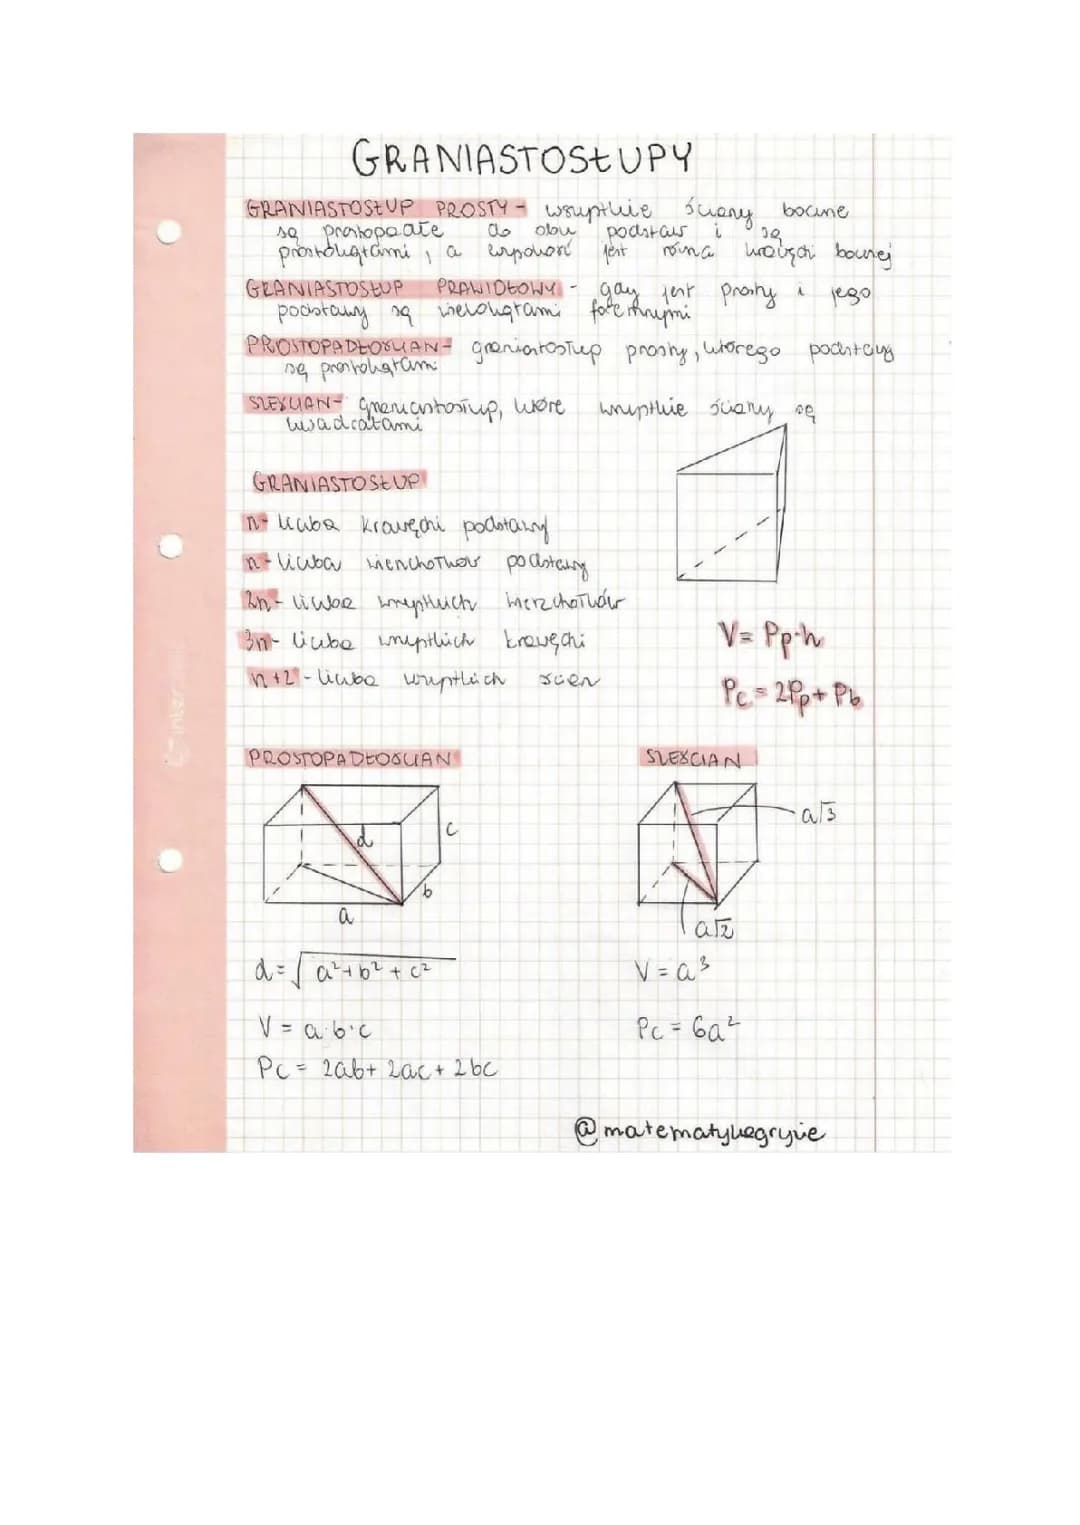 GRANIASTOSŁUPY
GRANIASTOSŁUP PROSTY - wszystkie ściany boczne
są prostopadłe do obu podstaw i są
prostokątami, a wysokość jest równa krawędzi bocznej
GRANIASTOSŁUP PRAWIDŁOWY - gdy jest prosty i jego
podstawy są wielokątami foremnymi
PROSTOPADŁOŚCIAN - graniastosłup prosty, którego podstawy
są prostokątami
SZEŚCIAN - graniastosłup, które wszystkie ściany są
kwadratami
GRANIASTOSŁUP
n - liczba krawędzi podstawy
n - liczba wierzchołków podstawy
2n - liczba wszystkich wierzchołków
3n - liczba wszystkich krawędzi
n+2 - liczba wszystkich ścian
V = Pp·h
Pc = 2Pp + Pb
PROSTOPADŁOŚCIAN
d
c
b
a
d = √a²+b²+c²
V = a·b·c
Pc = 2ab + 2ac + 2bc
SZEŚCIAN
a√3
a√2
V = a³
Pc = 6a²
@matematykagryzie
inter